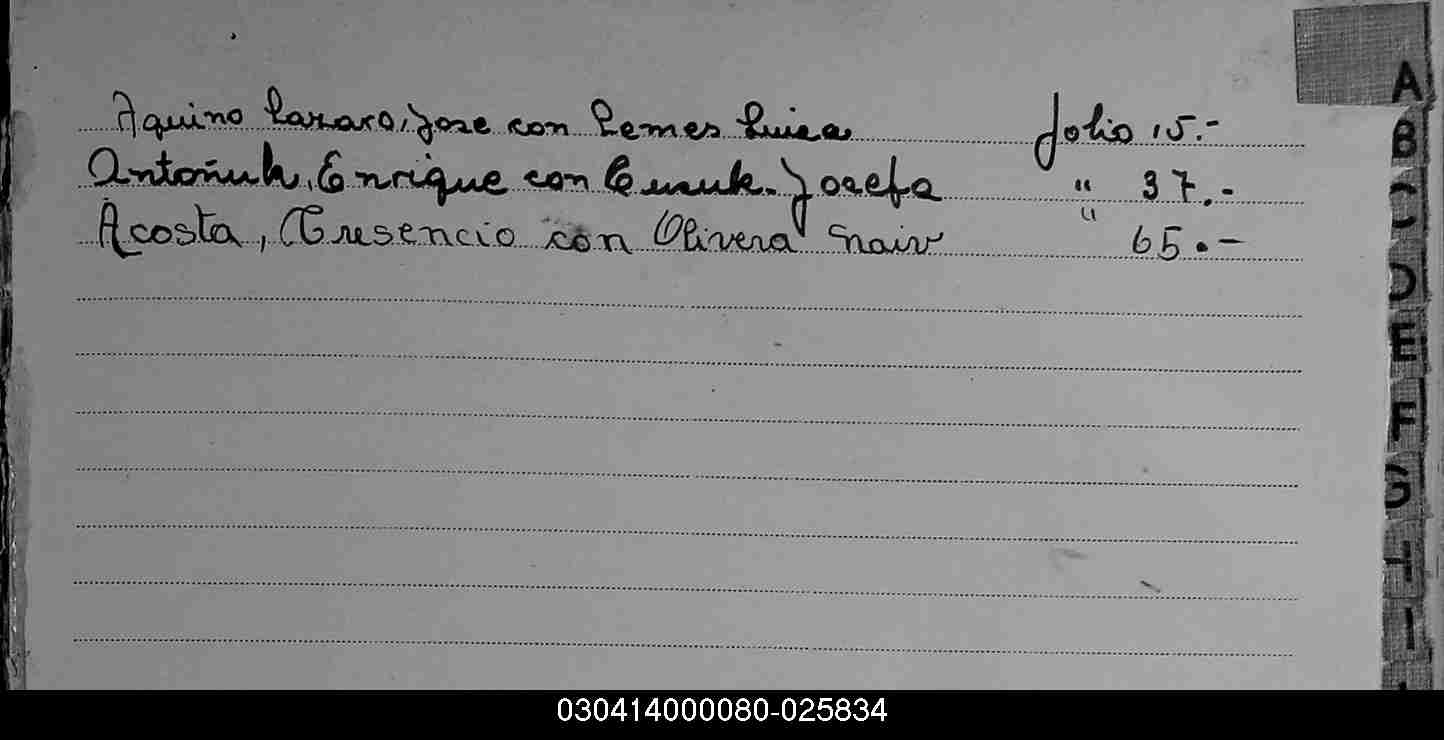 Aquino Lazaro, Jose con Lemes Luisa folio 15.-
Antoñuk, Enrique con Josefa " 37.-
Acosta, Cresencio con Olivera " 65.-
A
B
C
D
E
F
G
H
I
030414000080-025834